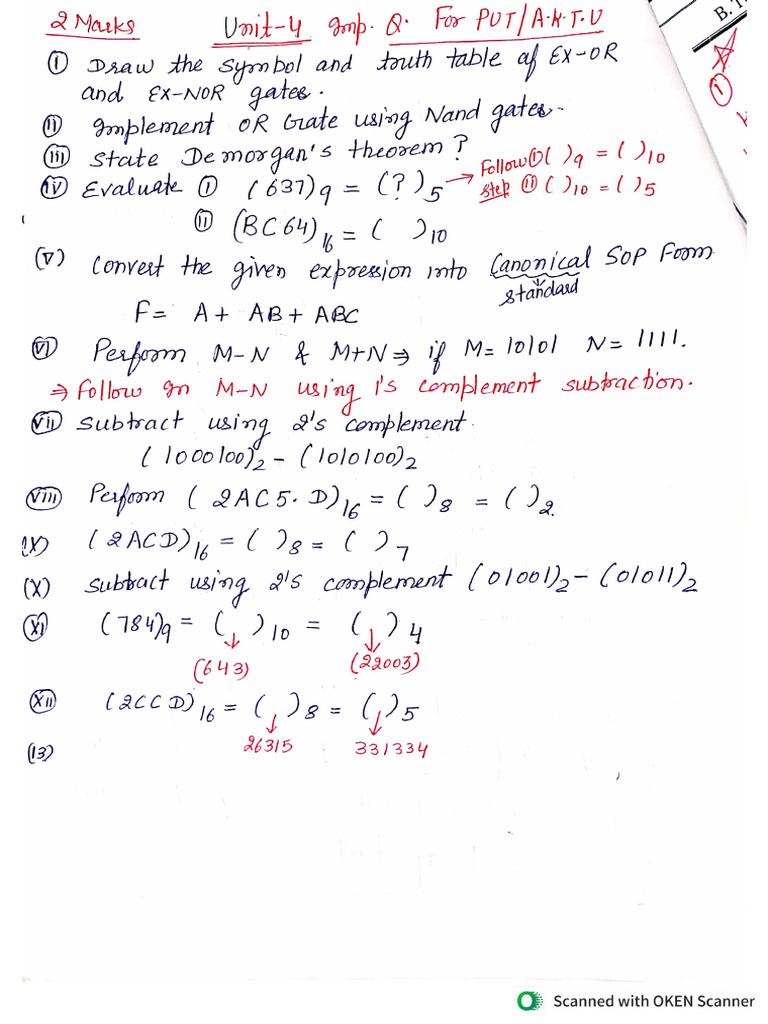 2 Marks Unit-4 Imp. Q. For PUT/A.K.T.U
B.T
(i) Draw the symbol and truth table of EX-OR
and EX-NOR gates.
(i)
(ii) Implement OR Gate using Nand gates.
(iii) State Demorgan's theorem?
(iv) Evaluate (i) (637)9 = (?)5 → Follow (i) ( )9 = ( )10
step (ii) ( )10 = ( )5
(ii) (BC64)16 = ( )10
(v) Convert the given expression into Canonical SOP Form
standard
F = A + AB + ABC
(vi) Perform M-N & M+N ⇒ if M = 10101 N = 1111.
⇒ Follow In M-N using 1's complement subtraction.
(vii) Subtract using 2's complement.
(1000100)2 - (1010100)2
(viii) Perform (2AC5.D)16 = ( )8 = ( )2.
(ix) (2ACD)16 = ( )8 = ( )7
(x) Subtract using 2's complement (01001)2 - (01011)2
(xi) (784)9 = ( )10 = ( )4
(643) (22003)
(xii) (2CCD)16 = ( )8 = ( )5
26315 331334
(13)
Scanned with OKEN Scanner